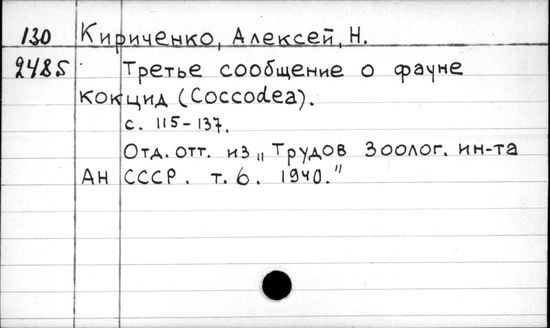 130 Кириченко, Алексей, Н.
2485 Третье сообщение о фауне
кокцид (Coccodea).
с. 115-137.
Отд. отт. из „Трудов Зоолог. ин-та
АН СССР. т. 6. 1940."